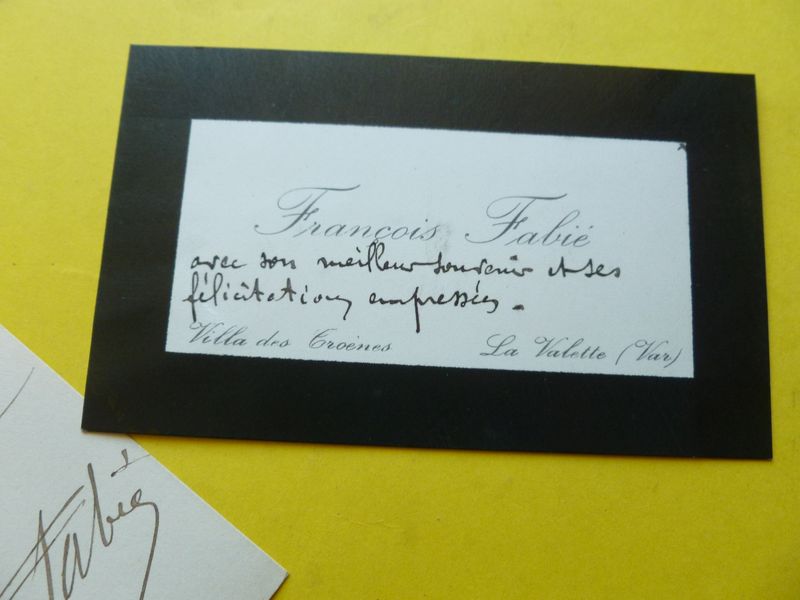 François Fabié
avec son meilleur souvenir et ses
félicitations empressées.
Villa des Troènes
La Valette (Var)
Fabié